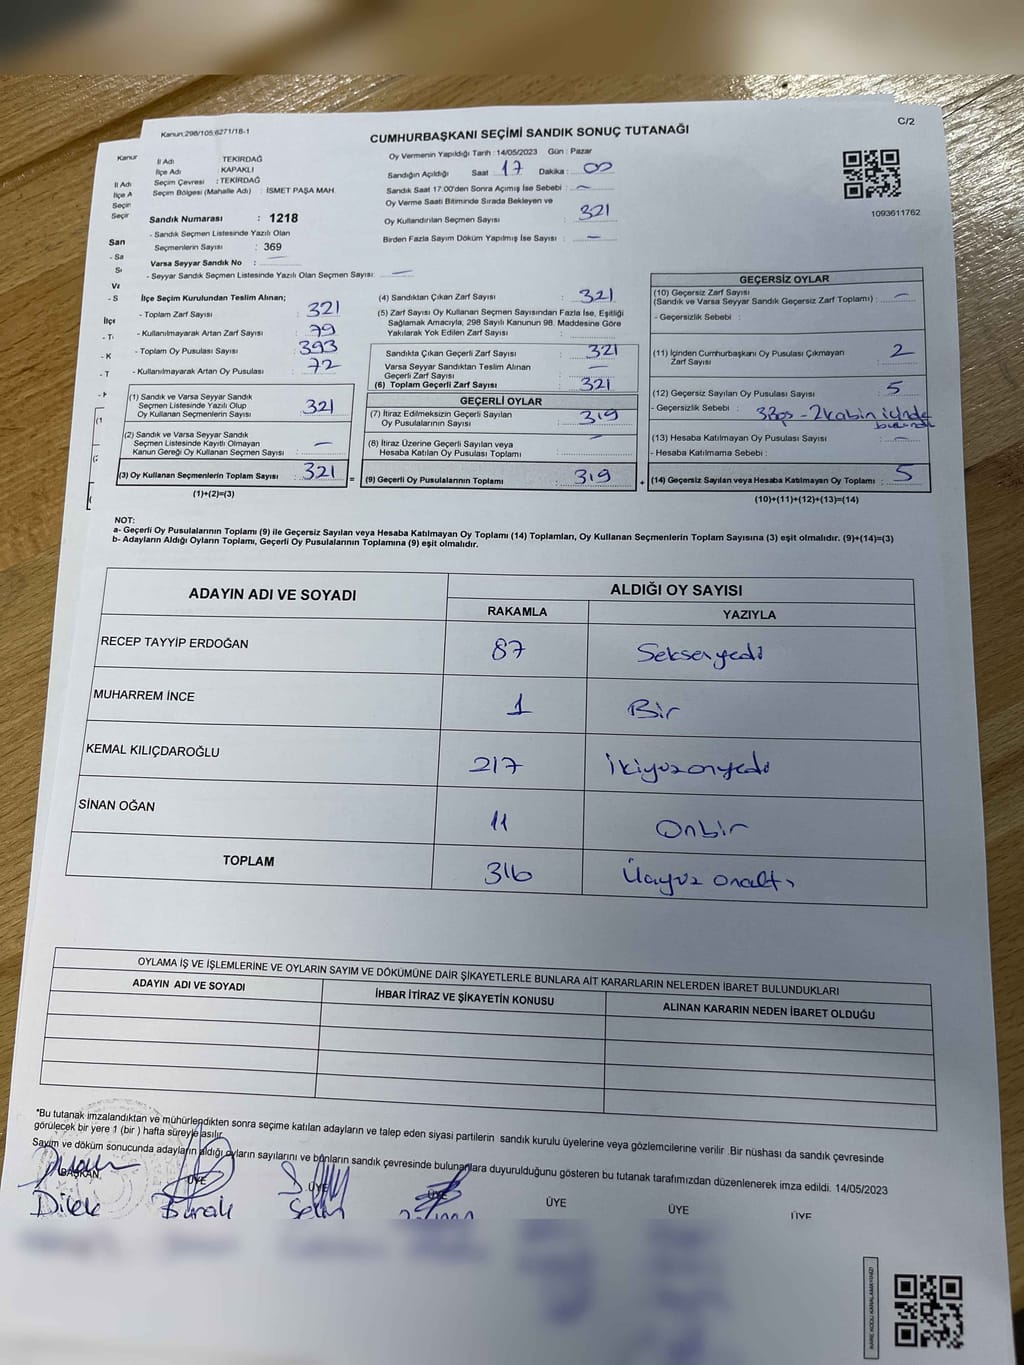 Kanun;298/105,6271/18-1
C/2
CUMHURBAŞKANI SEÇİMİ SANDIK SONUÇ TUTANAĞI
Kanun
İl Adı : TEKİRDAĞ
İlçe Adı : KAPAKLI
Seçim Çevresi : TEKİRDAĞ
Seçim Bölgesi (Mahalle Adı) : İSMET PAŞA MAH.
Sandık Numarası : 1218
- Sandık Seçmen Listesinde Yazılı Olan
Seçmenlerin Sayısı : 369
Varsa Seyyar Sandık No : —
- Seyyar Sandık Seçmen Listesinde Yazılı Olan Seçmen Sayısı: —
Oy Vermenin Yapıldığı Tarih : 14/05/2023 Gün : Pazar
Sandığın Açıldığı Saat : 17 Dakika : 00
Sandık Saat 17:00'den Sonra Açılmış İse Sebebi : —
Oy Verme Saati Bitiminde Sırada Bekleyen ve
Oy Kullandırılan Seçmen Sayısı : 321
Birden Fazla Sayım Döküm Yapılmış İse Sayısı : —
1093611762
İlçe Seçim Kurulundan Teslim Alınan;
- Toplam Zarf Sayısı : 321
- Kullanılmayarak Artan Zarf Sayısı : 79
- Toplam Oy Pusulası Sayısı : 393
- Kullanılmayarak Artan Oy Pusulası : 72
(1) Sandık ve Varsa Seyyar Sandık
Seçmen Listesinde Yazılı Olup
Oy Kullanan Seçmenlerin Sayısı : 321
(2) Sandık ve Varsa Seyyar Sandık
Seçmen Listesinde Kayıtlı Olmayan
Kanun Gereği Oy Kullanan Seçmen Sayısı : —
(3) Oy Kullanan Seçmenlerin Toplam Sayısı : 321
(1)+(2)=(3)
=
(4) Sandıktan Çıkan Zarf Sayısı : 321
(5) Zarf Sayısı Oy Kullanan Seçmen Sayısından Fazla İse, Eşitliği
Sağlamak Amacıyla, 298 Sayılı Kanunun 98. Maddesine Göre
Yakılarak Yok Edilen Zarf Sayısı :
Sandıkta Çıkan Geçerli Zarf Sayısı : 321
Varsa Seyyar Sandıktan Teslim Alınan
Geçerli Zarf Sayısı : —
(6) Toplam Geçerli Zarf Sayısı : 321
GEÇERLİ OYLAR
(7) İtiraz Edilmeksizin Geçerli Sayılan
Oy Pusulalarının Sayısı : 319
(8) İtiraz Üzerine Geçerli Sayılan veya
Hesaba Katılan Oy Pusulası Toplamı : —
(9) Geçerli Oy Pusulalarının Toplamı : 319
+
GEÇERSİZ OYLAR
(10) Geçersiz Zarf Sayısı
(Sandık ve Varsa Seyyar Sandık Geçersiz Zarf Toplamı) : —
- Geçersizlik Sebebi :
(11) İçinden Cumhurbaşkanı Oy Pusulası Çıkmayan
Zarf Sayısı : 2
(12) Geçersiz Sayılan Oy Pusulası Sayısı : 5
- Geçersizlik Sebebi : 3 Boş - 2 kabin içinde
bulundu
(13) Hesaba Katılmayan Oy Pusulası Sayısı : —
- Hesaba Katılmama Sebebi :
(14) Geçersiz Sayılan veya Hesaba Katılmayan Oy Toplamı : 5
(10)+(11)+(12)+(13)=(14)
NOT:
a- Geçerli Oy Pusulalarının Toplamı (9) ile Geçersiz Sayılan veya Hesaba Katılmayan Oy Toplamı (14) Toplamları, Oy Kullanan Seçmenlerin Toplam Sayısına (3) eşit olmalıdır. (9)+(14)=(3)
b- Adayların Aldığı Oyların Toplamı, Geçerli Oy Pusulalarının Toplamına (9) eşit olmalıdır.
ADAYIN ADI VE SOYADI
ALDIĞI OY SAYISI
RAKAMLA YAZIYLA
RECEP TAYYİP ERDOĞAN 87 Seksenyedi
MUHARREM İNCE 1 Bir
KEMAL KILIÇDAROĞLU 217 İkiyüzonyedi
SİNAN OĞAN 11 Onbir
TOPLAM 316 Üçyüz onaltı
OYLAMA İŞ VE İŞLEMLERİNE VE OYLARIN SAYIM VE DÖKÜMÜNE DAİR ŞİKAYETLERLE BUNLARA AİT KARARLARIN NELERDEN İBARET BULUNDUKLARI
ADAYIN ADI VE SOYADI İHBAR İTİRAZ VE ŞİKAYETİN KONUSU ALINAN KARARIN NEDEN İBARET OLDUĞU
*Bu tutanak imzalandıktan ve mühürlendikten sonra seçime katılan adayların ve talep eden siyasi partilerin sandık kurulu üyelerine veya gözlemcilerine verilir .Bir nüshası da sandık çevresinde
görülecek bir yere 1 (bir ) hafta süreyle asılır.
Sayım ve döküm sonucunda adayların aldığı oyların sayılarını ve bunların sandık çevresinde bulunanlara duyurulduğunu gösteren bu tutanak tarafımızdan düzenlenerek imza edildi. 14/05/2023
BAŞKAN ÜYE ÜYE ÜYE ÜYE ÜYE ÜYE
Dilek Burak Selin